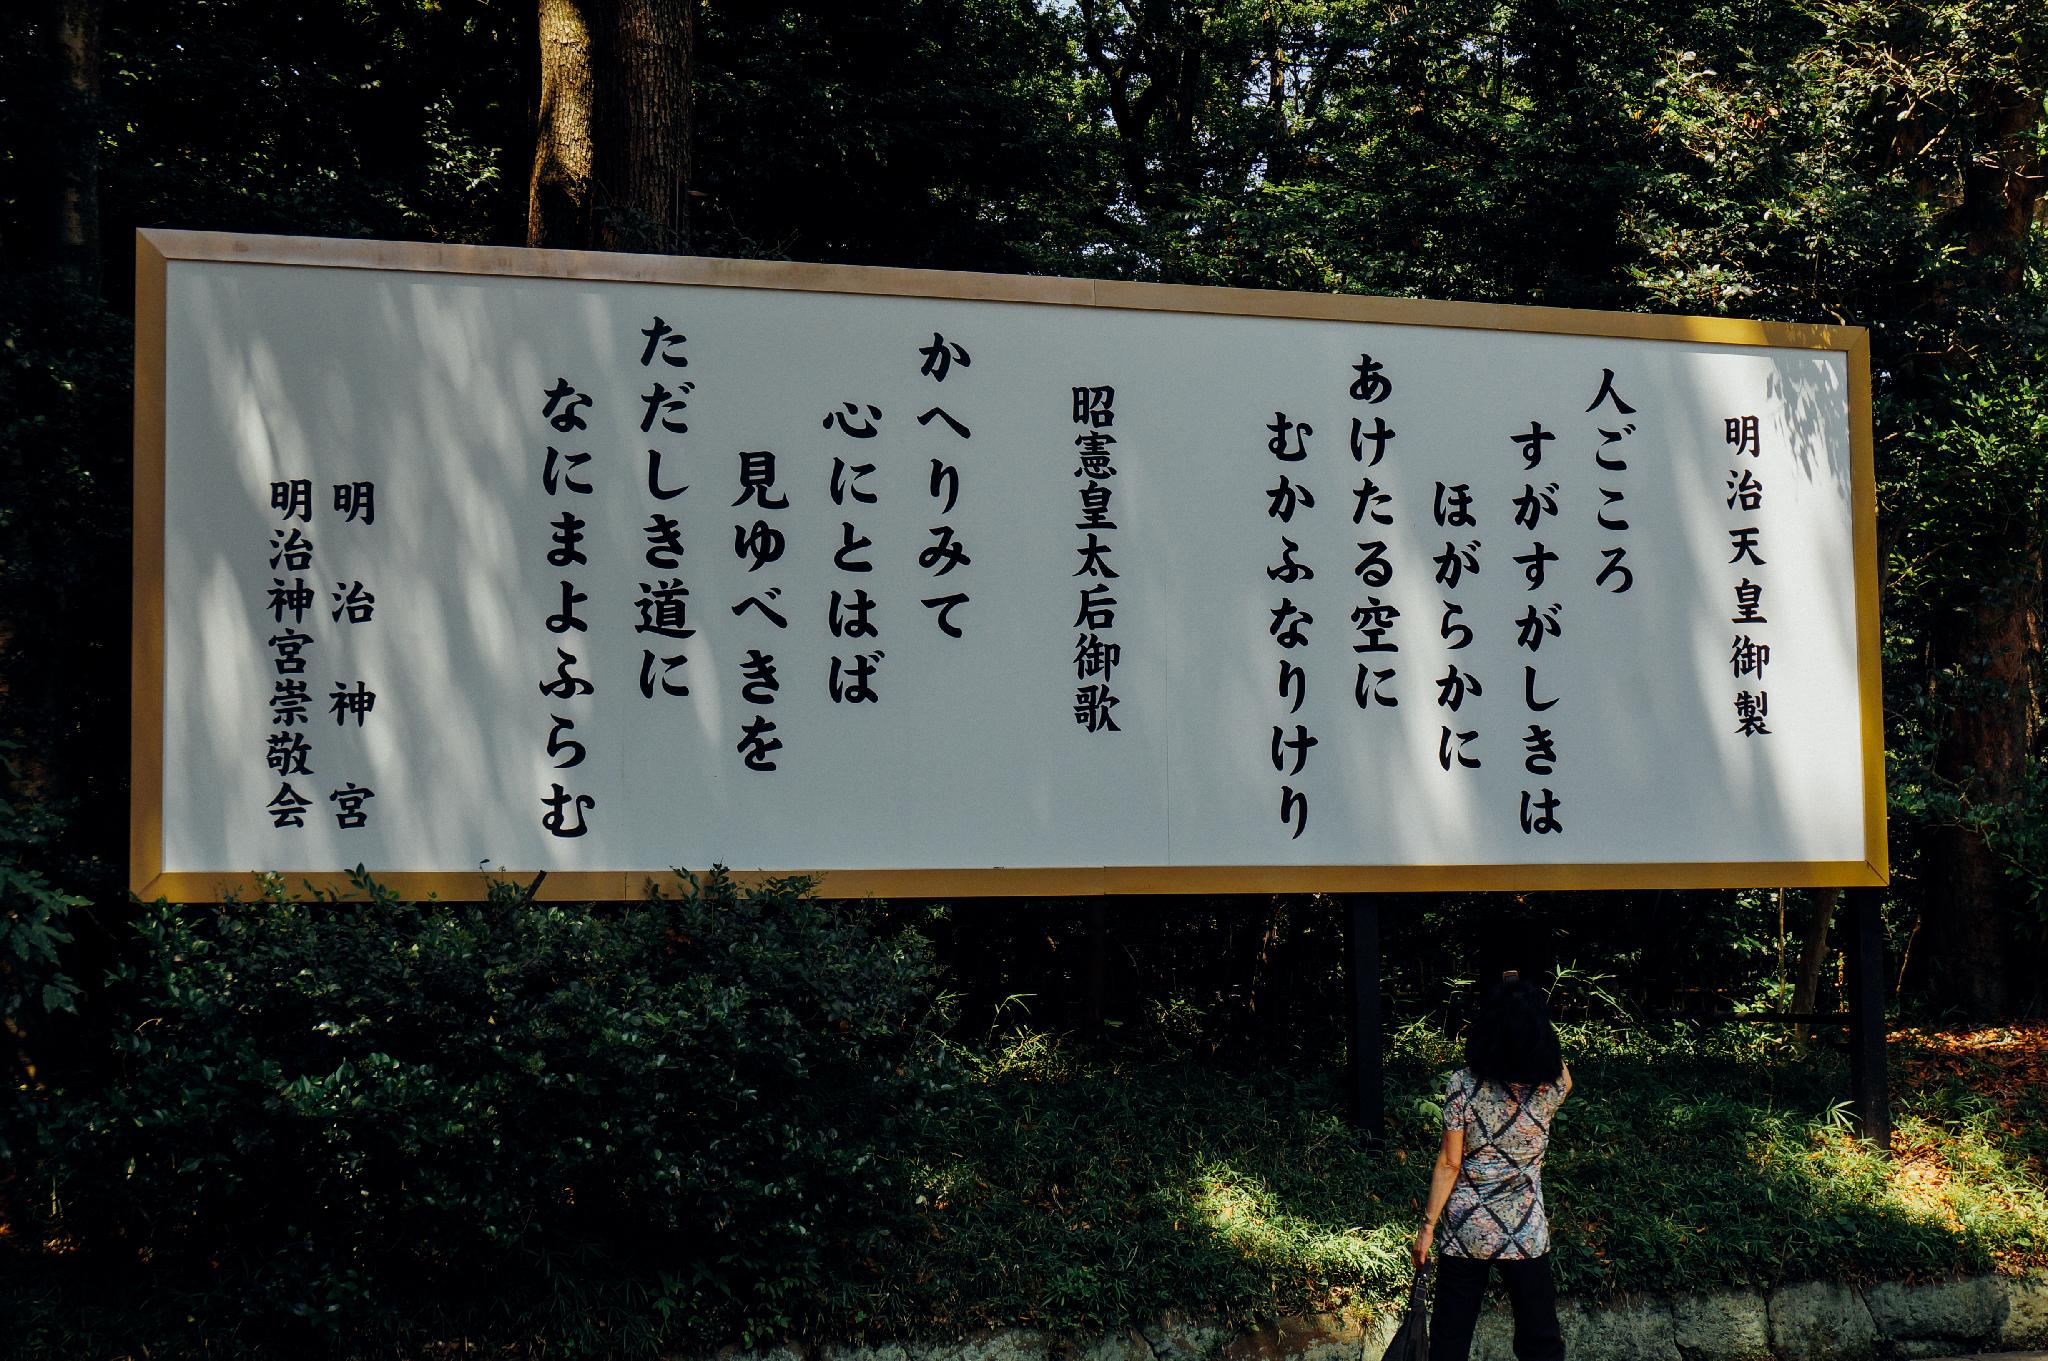 明治天皇御製
人ごころ
すがすがしきは
ほがらかに
あけたる空に
むかふなりけり
昭憲皇太后御歌
かへりみて
心にとはば
見ゆべきを
ただしき道に
なにまよふらむ
明治神宮
明治神宮崇敬会